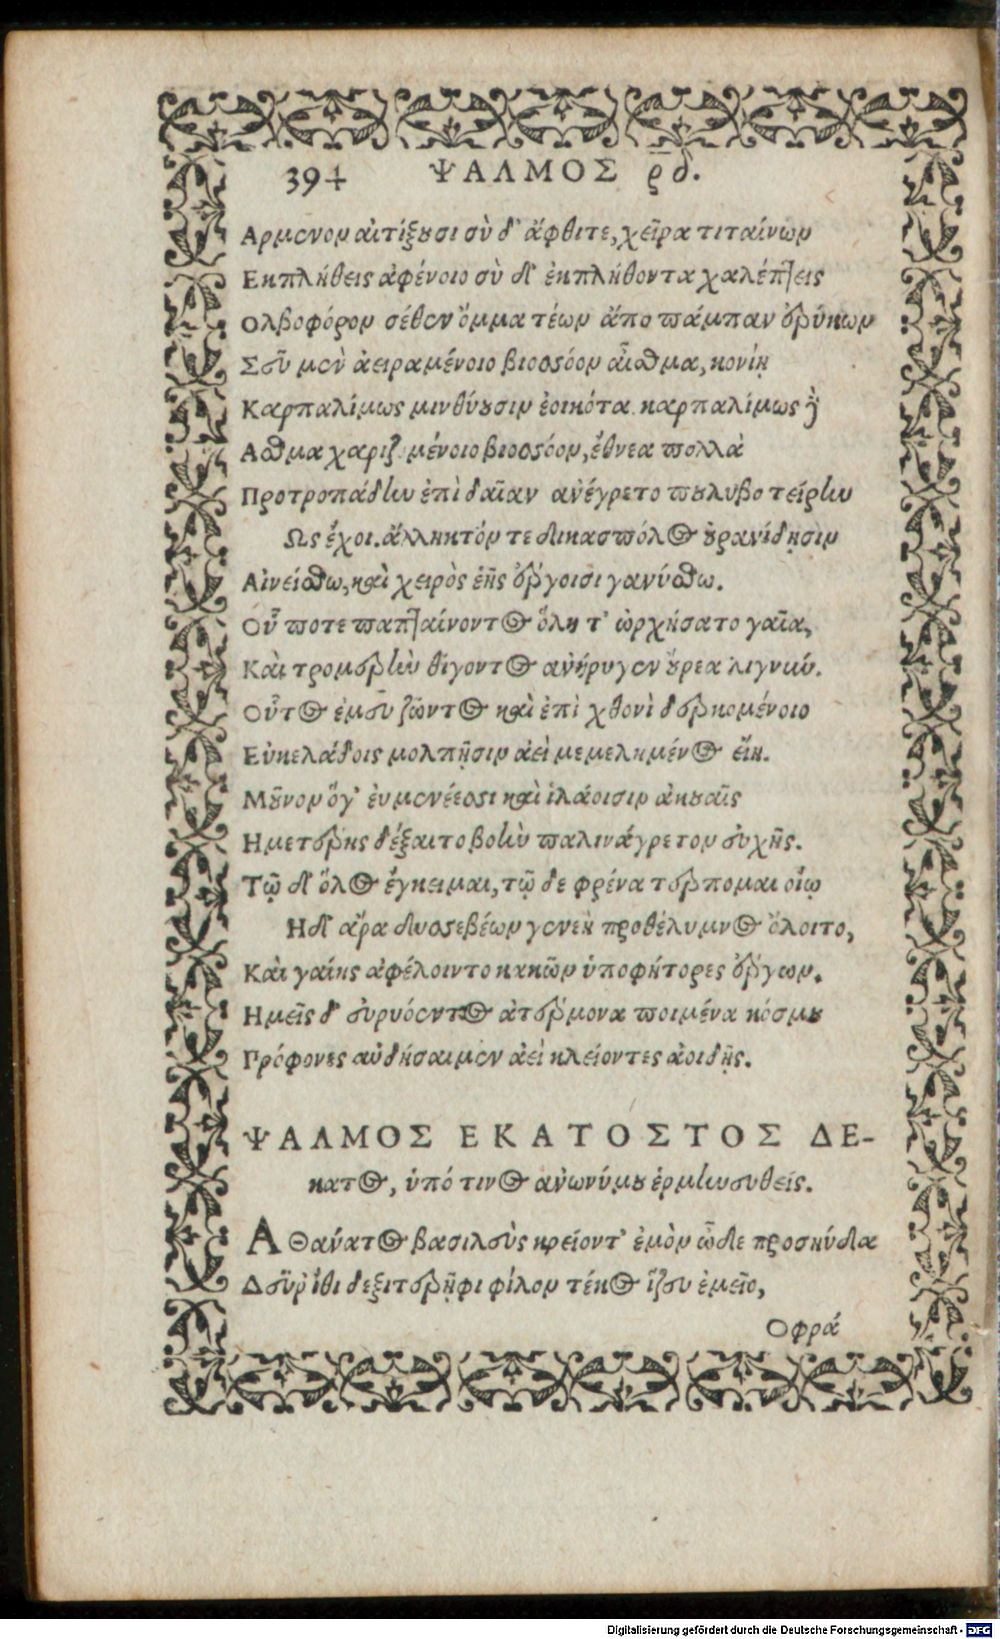 394 ΨΑΛΜΟΣ ρδ.
Αρμενον αἰτίξουσι σὺ δ' ἄφθιτε, χεῖρα τιταίνων
Εκπλήθεις ἀφένοιο σὺ δ' ἐκπλήθοντα χαλέπτεις
Ολβοφόρον σέθεν ὄμμα τέων ἄπο πάμπαν ἐρύκων
Σοῦ μὲν ἀειραμένοιο βιοσσόον αἶσθμα, κονίῃ
Καρπαλίμως μινθύουσιν ἐοικότα. καρπαλίμως δὲ
Ασθμα χαριζ μένοιο βιοσσόον, ἔθνεα πολλὰ
Προτροπάδην ἐπὶ δαῖαν ἀνέγρετο πουλυβοτείρην
Ως ἔχοι. ἄλληκτόν τε δικασπόλος οὐρανίδησιν
Αἰνείσθω, καὶ χειρὸς ἑῆς ἔργοισι γανύσθω.
Οὗ ποτε παπταίνοντος ὅλη τ' ὠρχήσατο γαῖα,
Καὶ τρομερὴν θίγοντος ἀνήρυγεν οὔρεα λιγνύν.
Οὗτος ἐμεῦ ζῶντος καὶ ἐπὶ χθονὶ δερκομένοιο
Εὐκελάδοις μολπῇσιν ἀεὶ μεμελημένος εἴη.
Μοῦνον ὅγ' ἐυμενέεσσι καὶ ἱλάοισιν ἀκουαῖς
Ημετέρης δέξαιτο βολὴν παλινάγρετον εὐχῆς.
Τῷ δ' ὅλος ἔγκειμαι, τῷ δε φρένα τέρπομαι οἴῳ
Η δ' ἄρα δυσσεβέων γενεὴ προθέλυμνος ὄλοιτο,
Καὶ γαίης ἀφέλοιντο κακῶν ὑποφήτορες ἔργων.
Ημεῖς δ' εὐρυόεντος ἀτέρμονα ποιμένα κόσμου
Πρόφονες αὐδήσαιμεν ἀεὶ κλείοντες ἀοιδῇς.
ΨΑΛΜΟΣ ΕΚΑΤΟΣΤΟΣ ΔΕ-
κατος, ὑπό τινος ἀνωνύμου ἑρμηνευθείς.
ΑΘανάτος βασιλεὺς κρείοντ' ἐμὸν ὧδε προσηύδα
Δεῦρ' ἴθι δεξιτερῆφι φίλον τέκος ἵζευ ἐμεῖο,
Οφρά
Digitalisierung gefördert durch die Deutsche Forschungsgemeinschaft - DFG